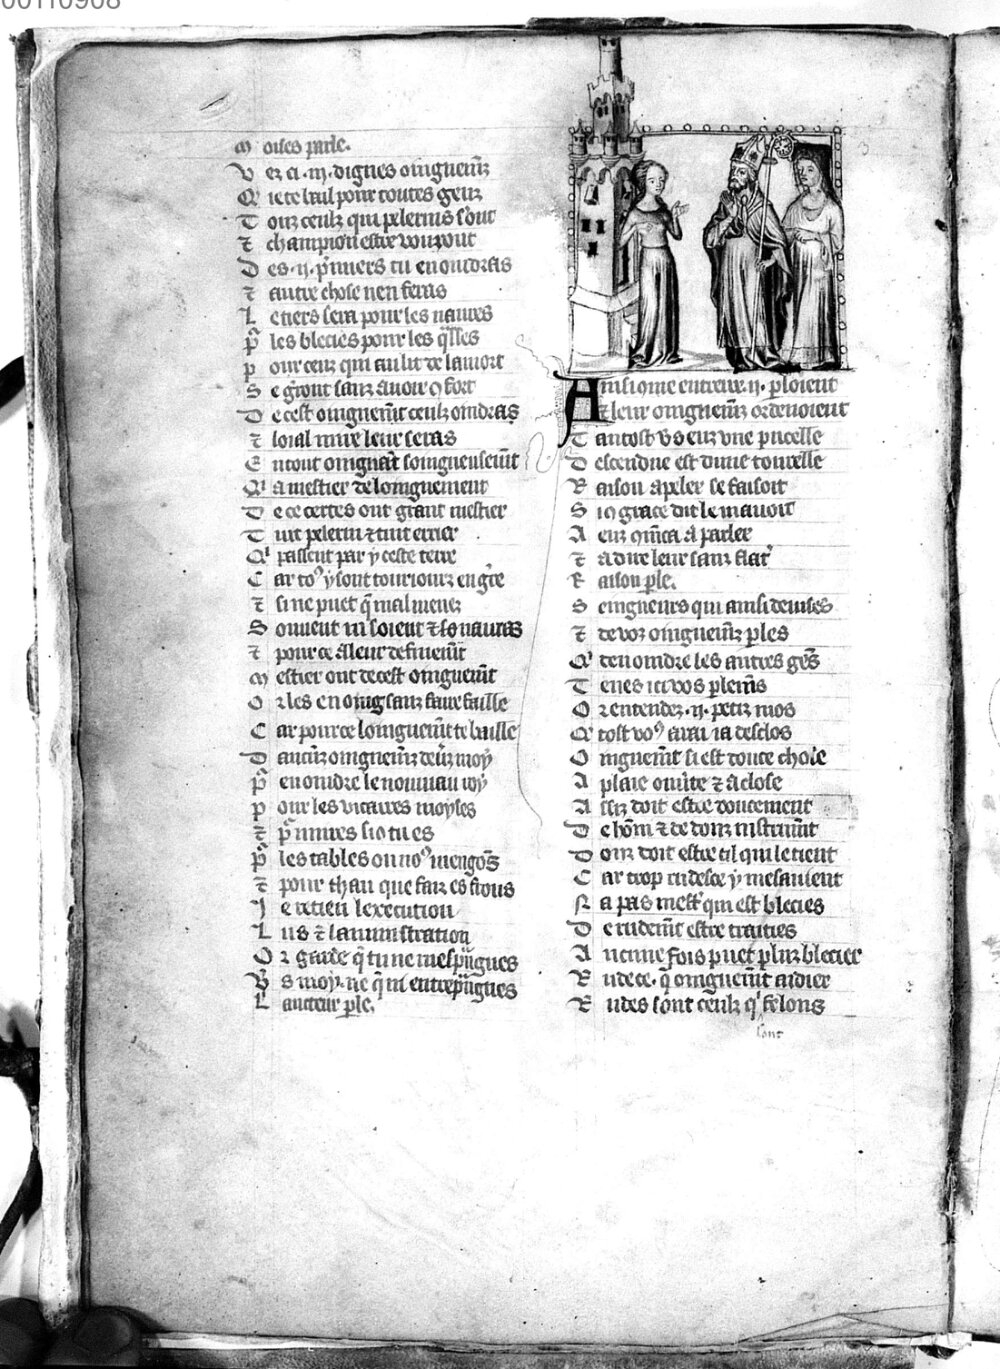 00110908
Moises parle.
Vez ci .iii. dignes oinguemẽz
Q̃ ie te bail pour toutes genz
Touz ceulz qui pelerins sont
⁊ champion estre vouront
Des .ii. p̃miers tu en oindras
⁊ autre chose nen feras
Le tiers sera pour les naures
P̃ les blecies pour les q̃sses
Pour ceuz qui au lit de la mort
Se gẽront sanz auoir 9fort
De cest oinguemẽt ceulz oindras
⁊ loial mire leur seras
En tout oignãt soingneusemẽt
Q̃ a mestier de loinguement
De ce certes ont grant mestier
Tuit pelerin ⁊ tuit errier
Qͥ passent par y ceste terre
Car toꝰ y sont touriourz en gr̃e
⁊ si ne puet q̃ mal menez
Souuent ni soient ⁊ fo naures
⁊ pour ce a leur definemẽt
Mestier ont de cest oinguemẽt
Or les en oing sanz faire faille
Car pour ce loinguemẽt te baille
Daucũs oinguemẽz deuãs moy
P̃ en oindre le nouuiau roy
Pour les vicaires moyses
⁊ p̃ mires si otu es
P̃ les tables ou noꝰ mengõs
⁊ pour than que faiz es fions
Je retien lexecution
Lus ⁊ laminnistration
Or garde q̃ tu ne mesp̃ngues
Vs moy. ne q̃ ni entrep̃ngues
Laucteur ꝑle.
Ainsi ome entreux .ii. ꝑloient
⁊ leur oinguemẽz ordenoient
Tantost vo euz vne pucelle
Descendue est dune tourelle
Raison apeler se faisoit
Si 9 grace dit le mauoit
A euz 9mẽca a parler
⁊ a dire leur sanz flatͬ
Raison ꝑle.
Seingneurs qui ainsi deuises
⁊ de voz oinguemẽz ꝑles
Q̃ den oindre les autres gẽs
Tenes ici vos ꝑlemẽs
Or entendez .ii. petiz mos
Q̃ tost voꝰ aurai ia desclos
Oinguemẽt si est douce chose
A plaie ouuͥte ⁊ a close
Assiz doit estre doucement
De hõm ⁊ de douz instrumẽt
Douz doit estre cil qui le tient
Car trop rudesce y mesauient
Na pas mestͬ qui est blecies
De rudemẽt estre traities
Aucune fois puet pluz blecier
Rudece. q̃ oinguemẽt aidier
Rudes sont ceulz qͥ felons
sont